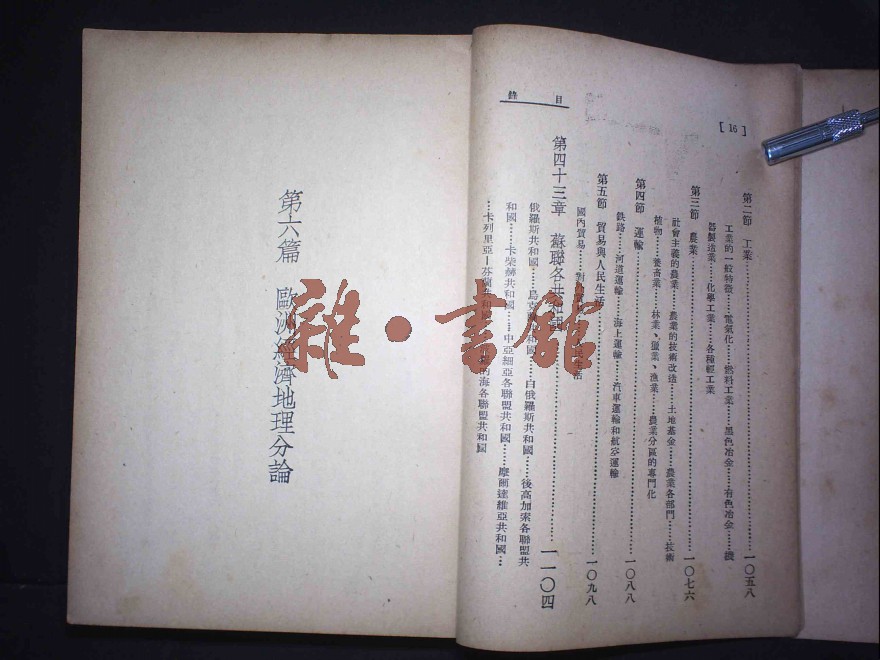 目錄
[16]
第二節 工業……一〇五八
工業的一般特徵……電氣化……燃料工業……黑色冶金……有色冶金……機
器製造業……化學工業……各種輕工業
第三節 農業……一〇七六
社會主義的農業……農業的技術改造……土地基金……農業各部門……技術
植物……養畜業……林業、獵業、漁業……農業分區的專門化
第四節 運輸……一〇八八
鐵路……河道運輸……海上運輸……汽車運輸和航空運輸
第五節 貿易與人民生活……一〇九八
國內貿易……對外貿易……人民生活
第四十三章 蘇聯各共和國……一一〇四
俄羅斯共和國……烏克蘭共和國……白俄羅斯共和國……後高加索各聯盟共
和國……卡柴赫共和國……中亞細亞各聯盟共和國……摩爾達維亞共和國…
…卡列里亞—芬蘭共和國……的海各聯盟共和國
第六篇 歐洲經濟地理分論
雜·書館